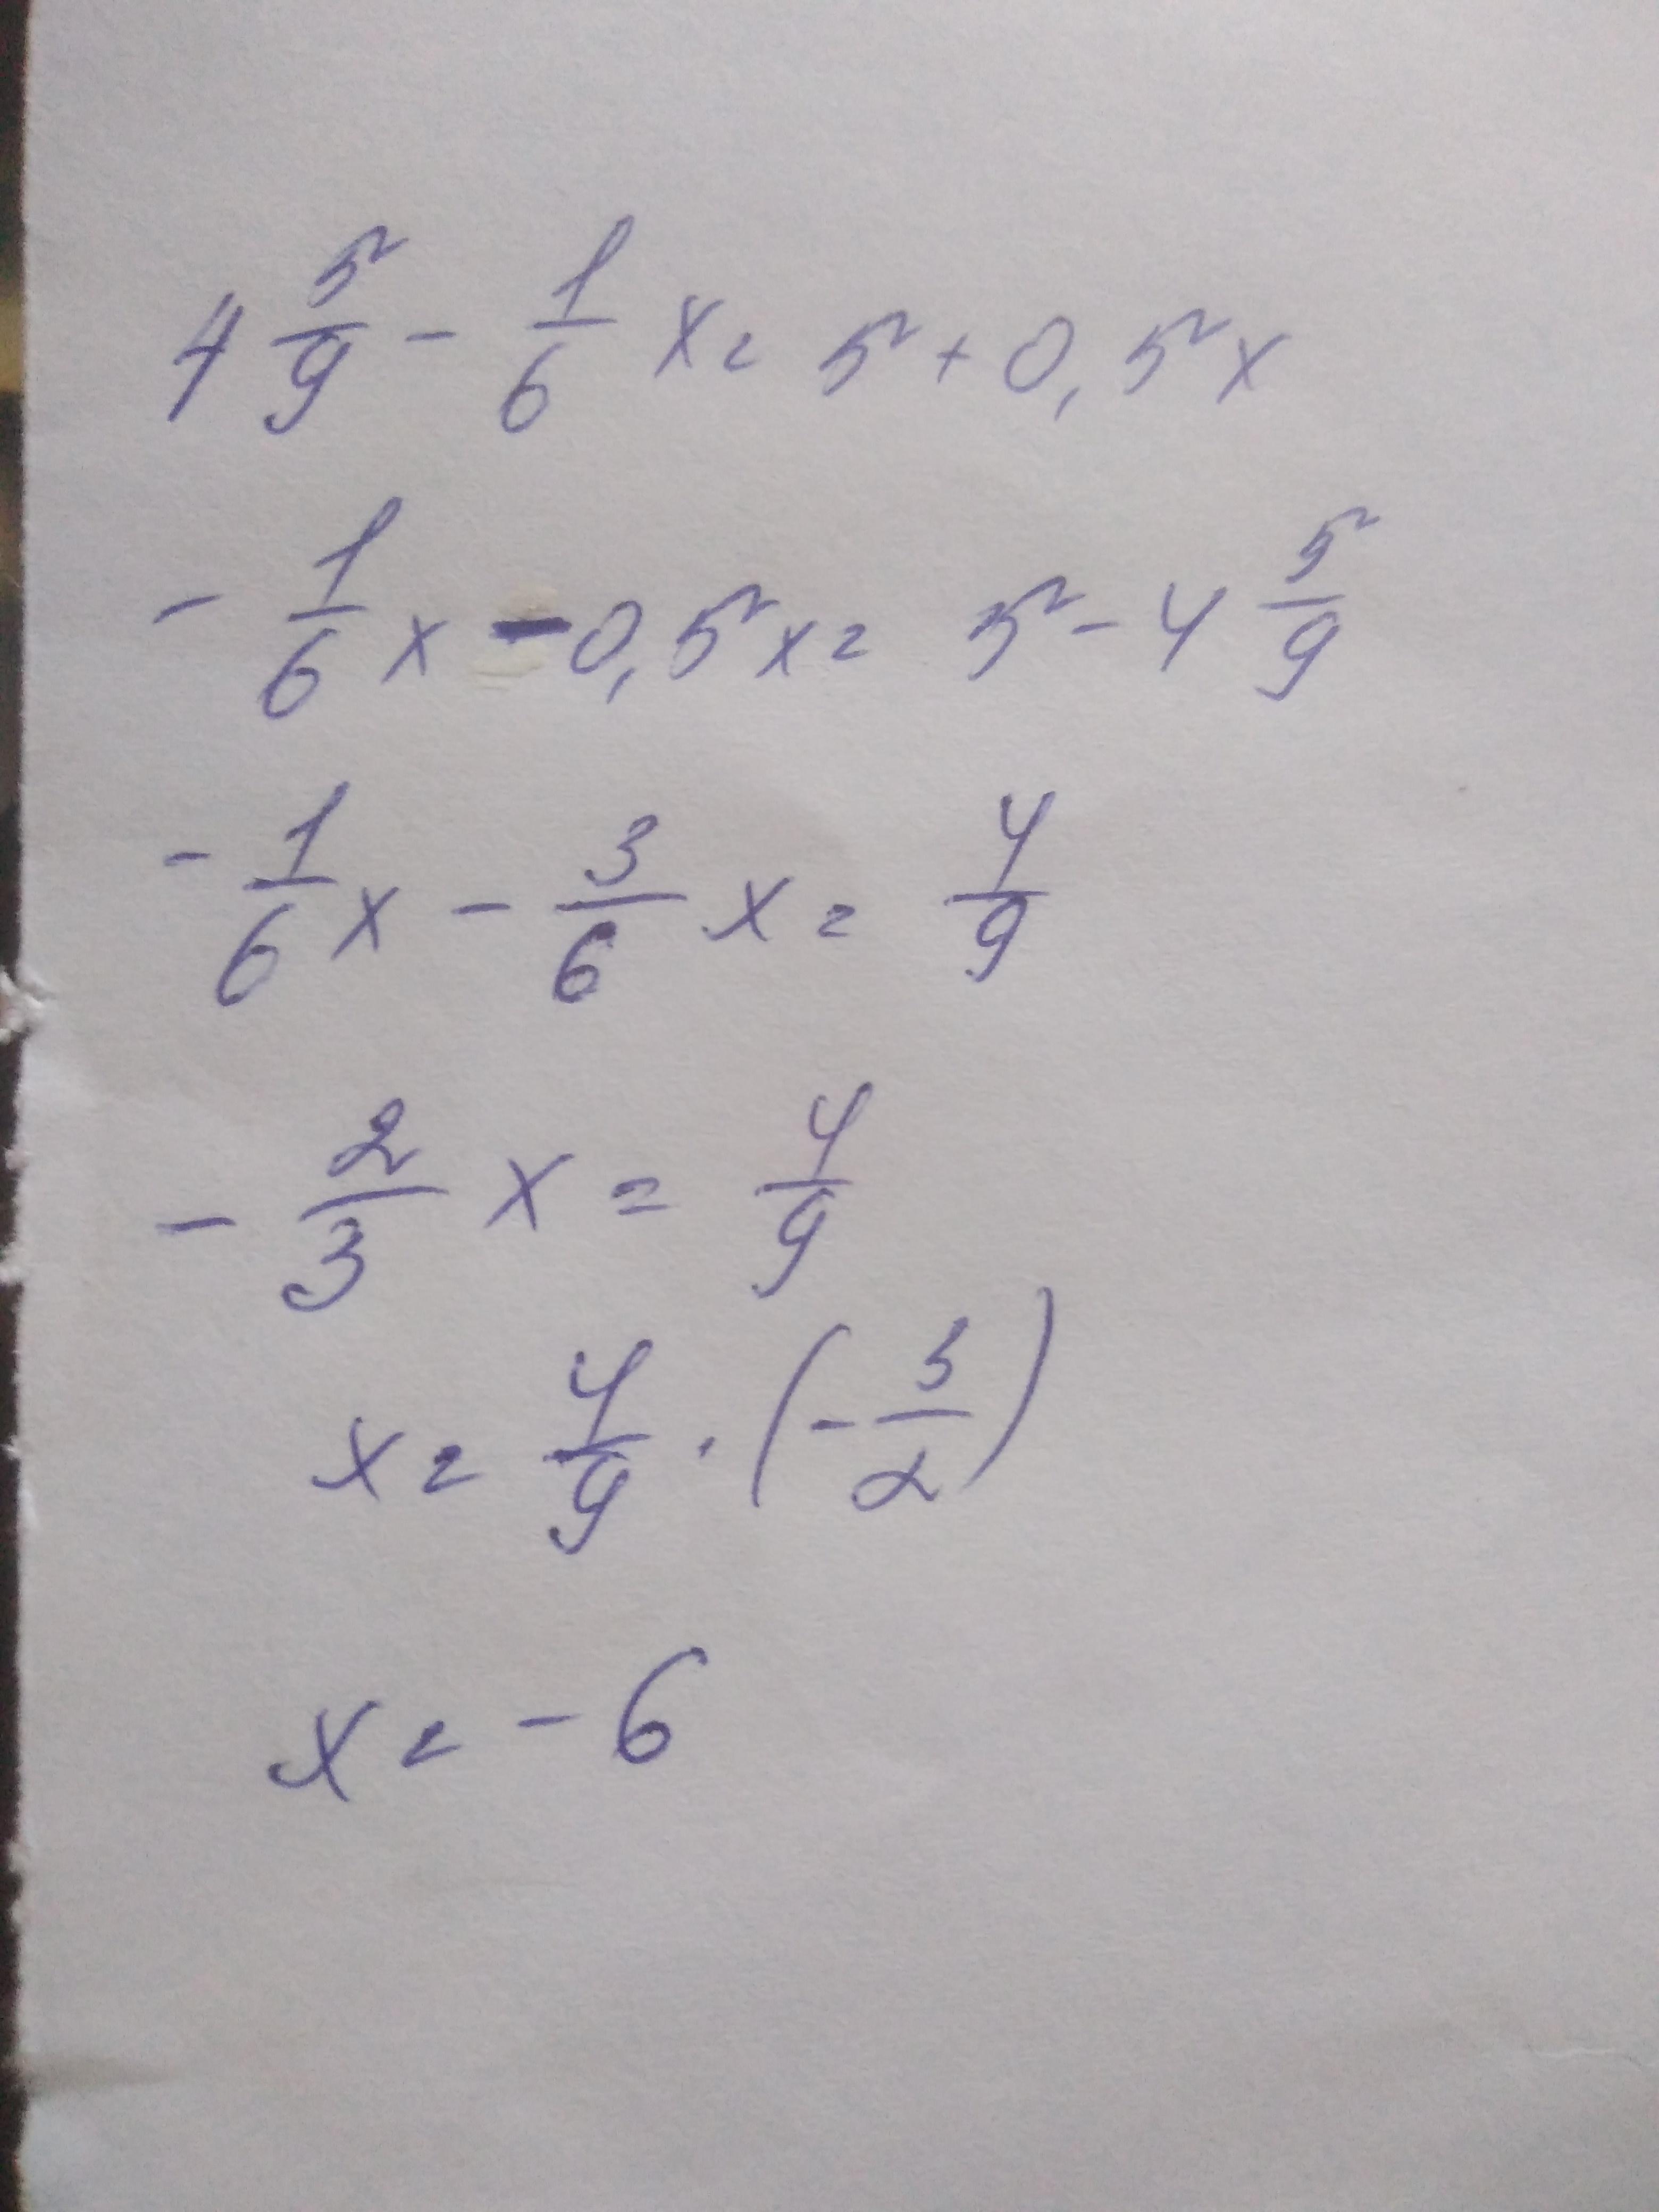 4 5/9 - 1/6 x = 5 + 0,5x
- 1/6 x - 0,5x = 5 - 4 5/9
- 1/6 x - 3/6 x = 4/9
- 2/3 x = 4/9
x = 4/9 · (- 3/2)
x = - 6